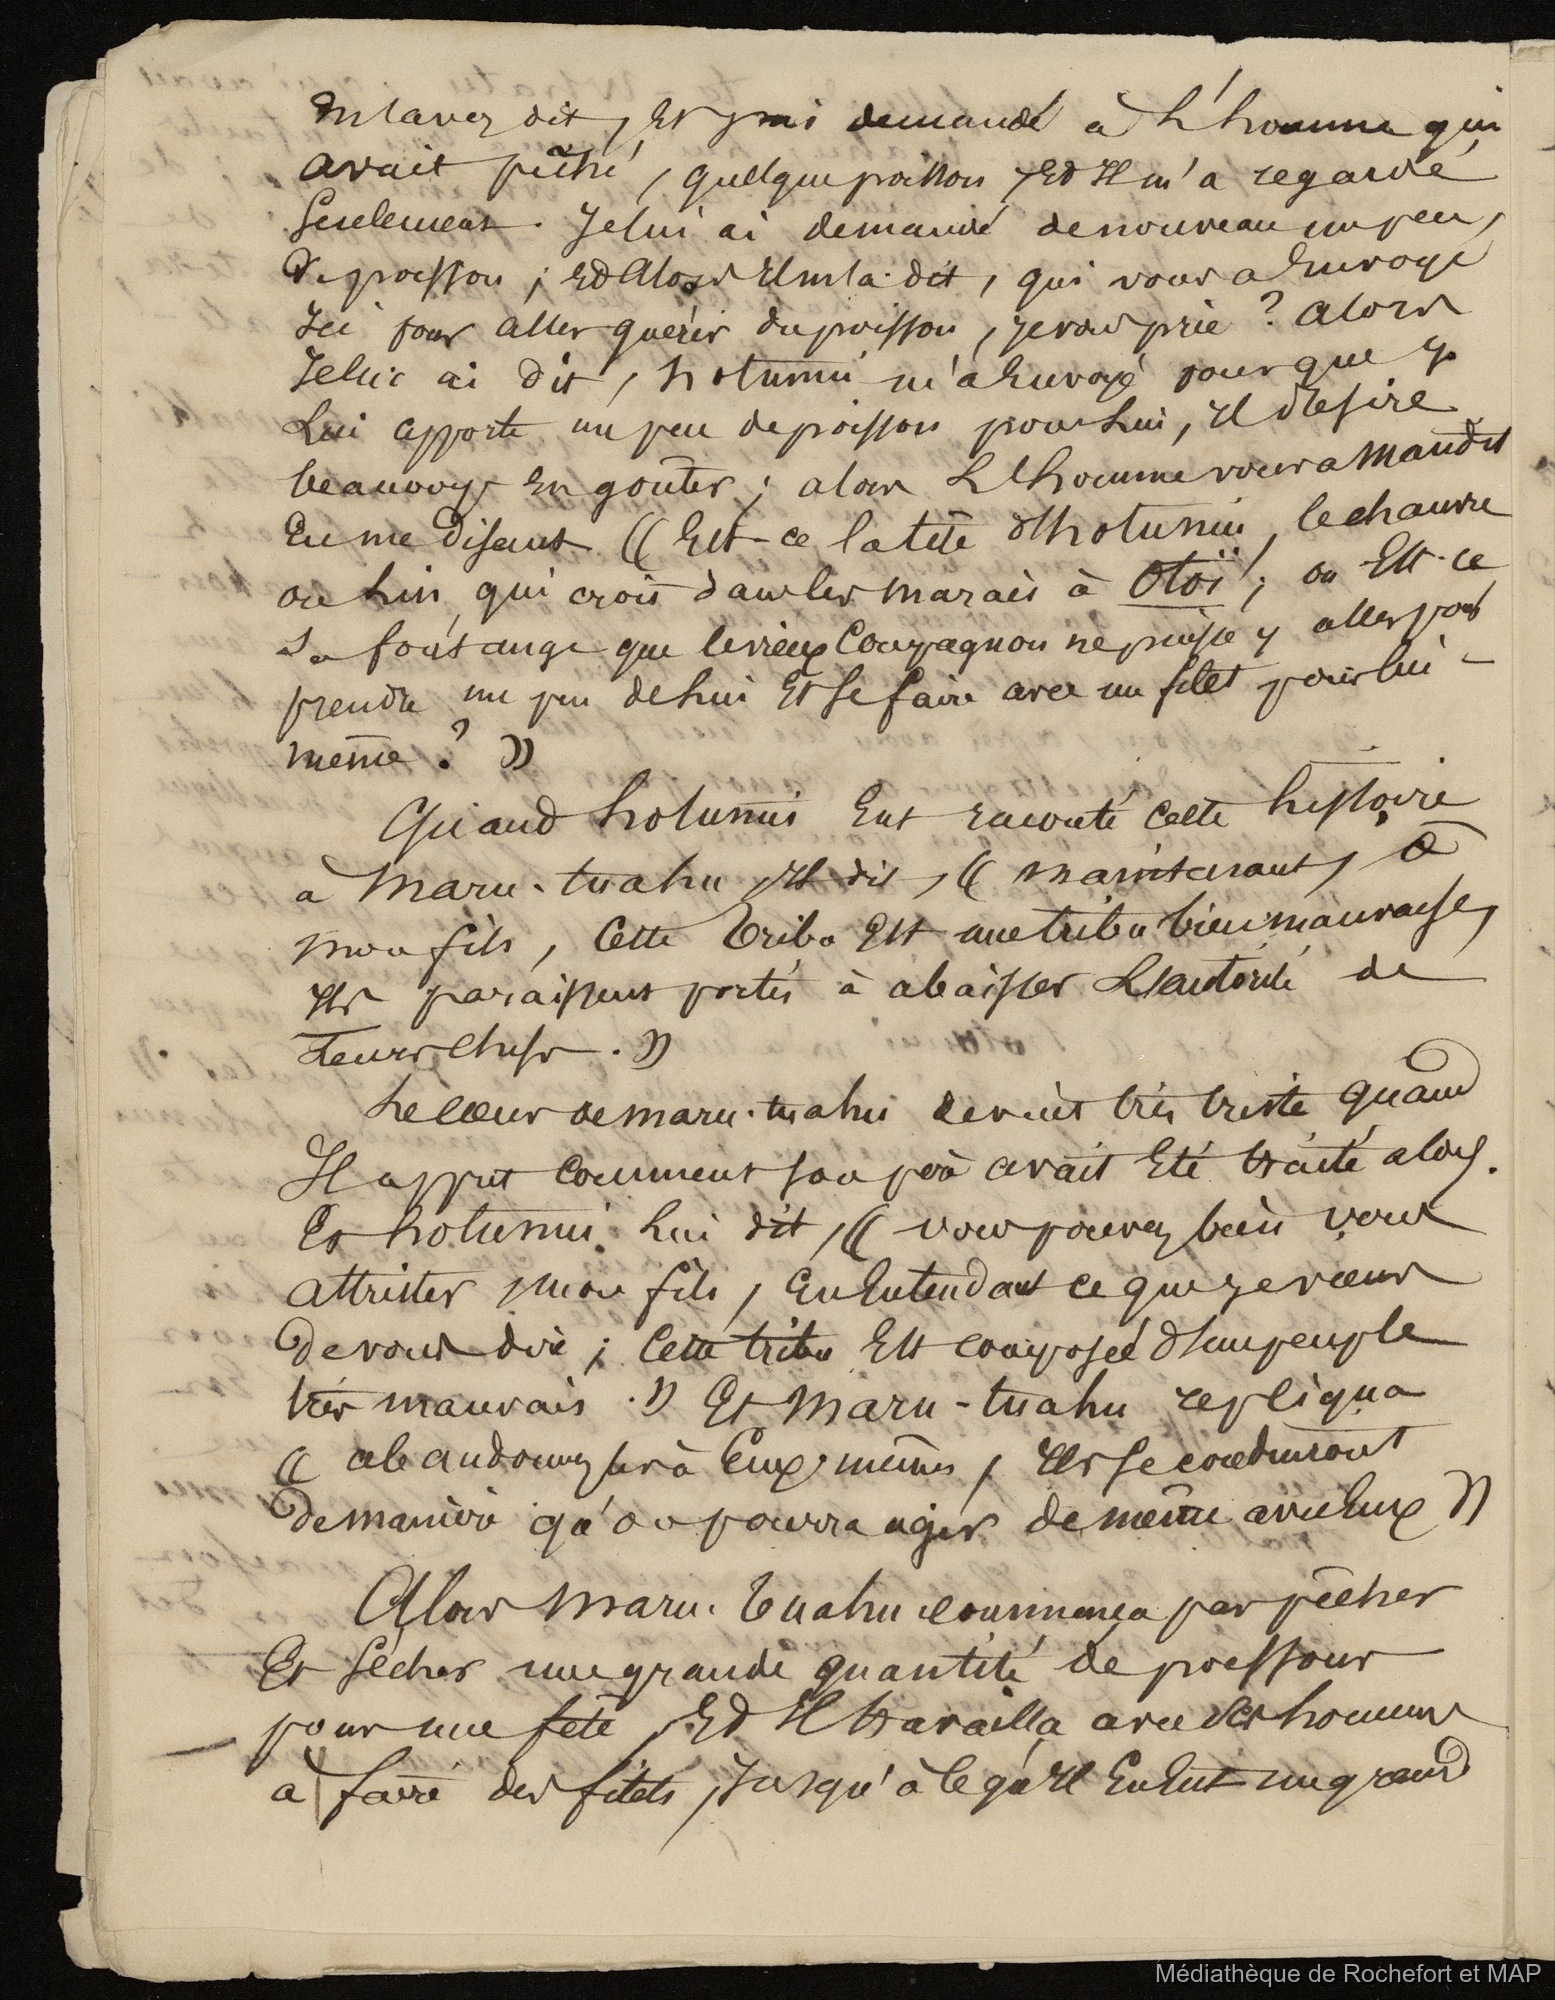 m'avez dit, Et j'ai demandé à L'homme qui
avait pêché, quelque poisson, Ed Il m'a regardé
Seulement. Je lui ai demandé de nouveau un peu,
De poisson ; Ed Alors Il m'a dit, qui vous a Envoyé
Ici pour aller quérir du poisson, je vous prie ? alors
Je lui ai dit, hotunui m'a Envoyé pour que je
Lui apporte un peu de poisson pour Lui, Il désire
beaucoup En goûter ; alors L'homme vous a maudit
En me disant (( Est-ce la tête d'hotunui, le chanvre
ou Lin qui croit dans les marais à Otoï ; ou Est-ce
que le vieux Compagnon ne puisse y aller pour
prendre un peu de Lin Et se faire avec un filet pour lui-
même ? ))
Quand hotunui Eut raconté cette histoire
à Maru-tuahu, Il dit, (( maintenant, ô
mon fils, Cette Tribu Est une tribu bien mauvaise,
Ils paraissent portés à abaisser L'autorité de
Leurs Chefs. ))
Le cœur de maru-tuahu devint très triste quand
Il apprit Comment son père avait Eté traité alors.
Et hotunui Lui dit, (( vous pouvez bien vous
attrister, mon fils, En Entendant ce que je viens
De vous dire ; Cette tribu Est composée d'un peuple
très mauvais. )) Et Maru-tuahu repliqua
(( abandonnez les à Eux-mêmes, Ils se conduiront
De manière qu'on pourra agir de même avec Eux ))
Alors Maru-tuahu commença par pêcher
Et Sécher une grande quantité de poissons
pour une fête, Ed Il travailla avec Ses hommes
à faire des filets, Jusqu'à ce qu'Il En Eut un grand
Médiathèque de Rochefort et MAP